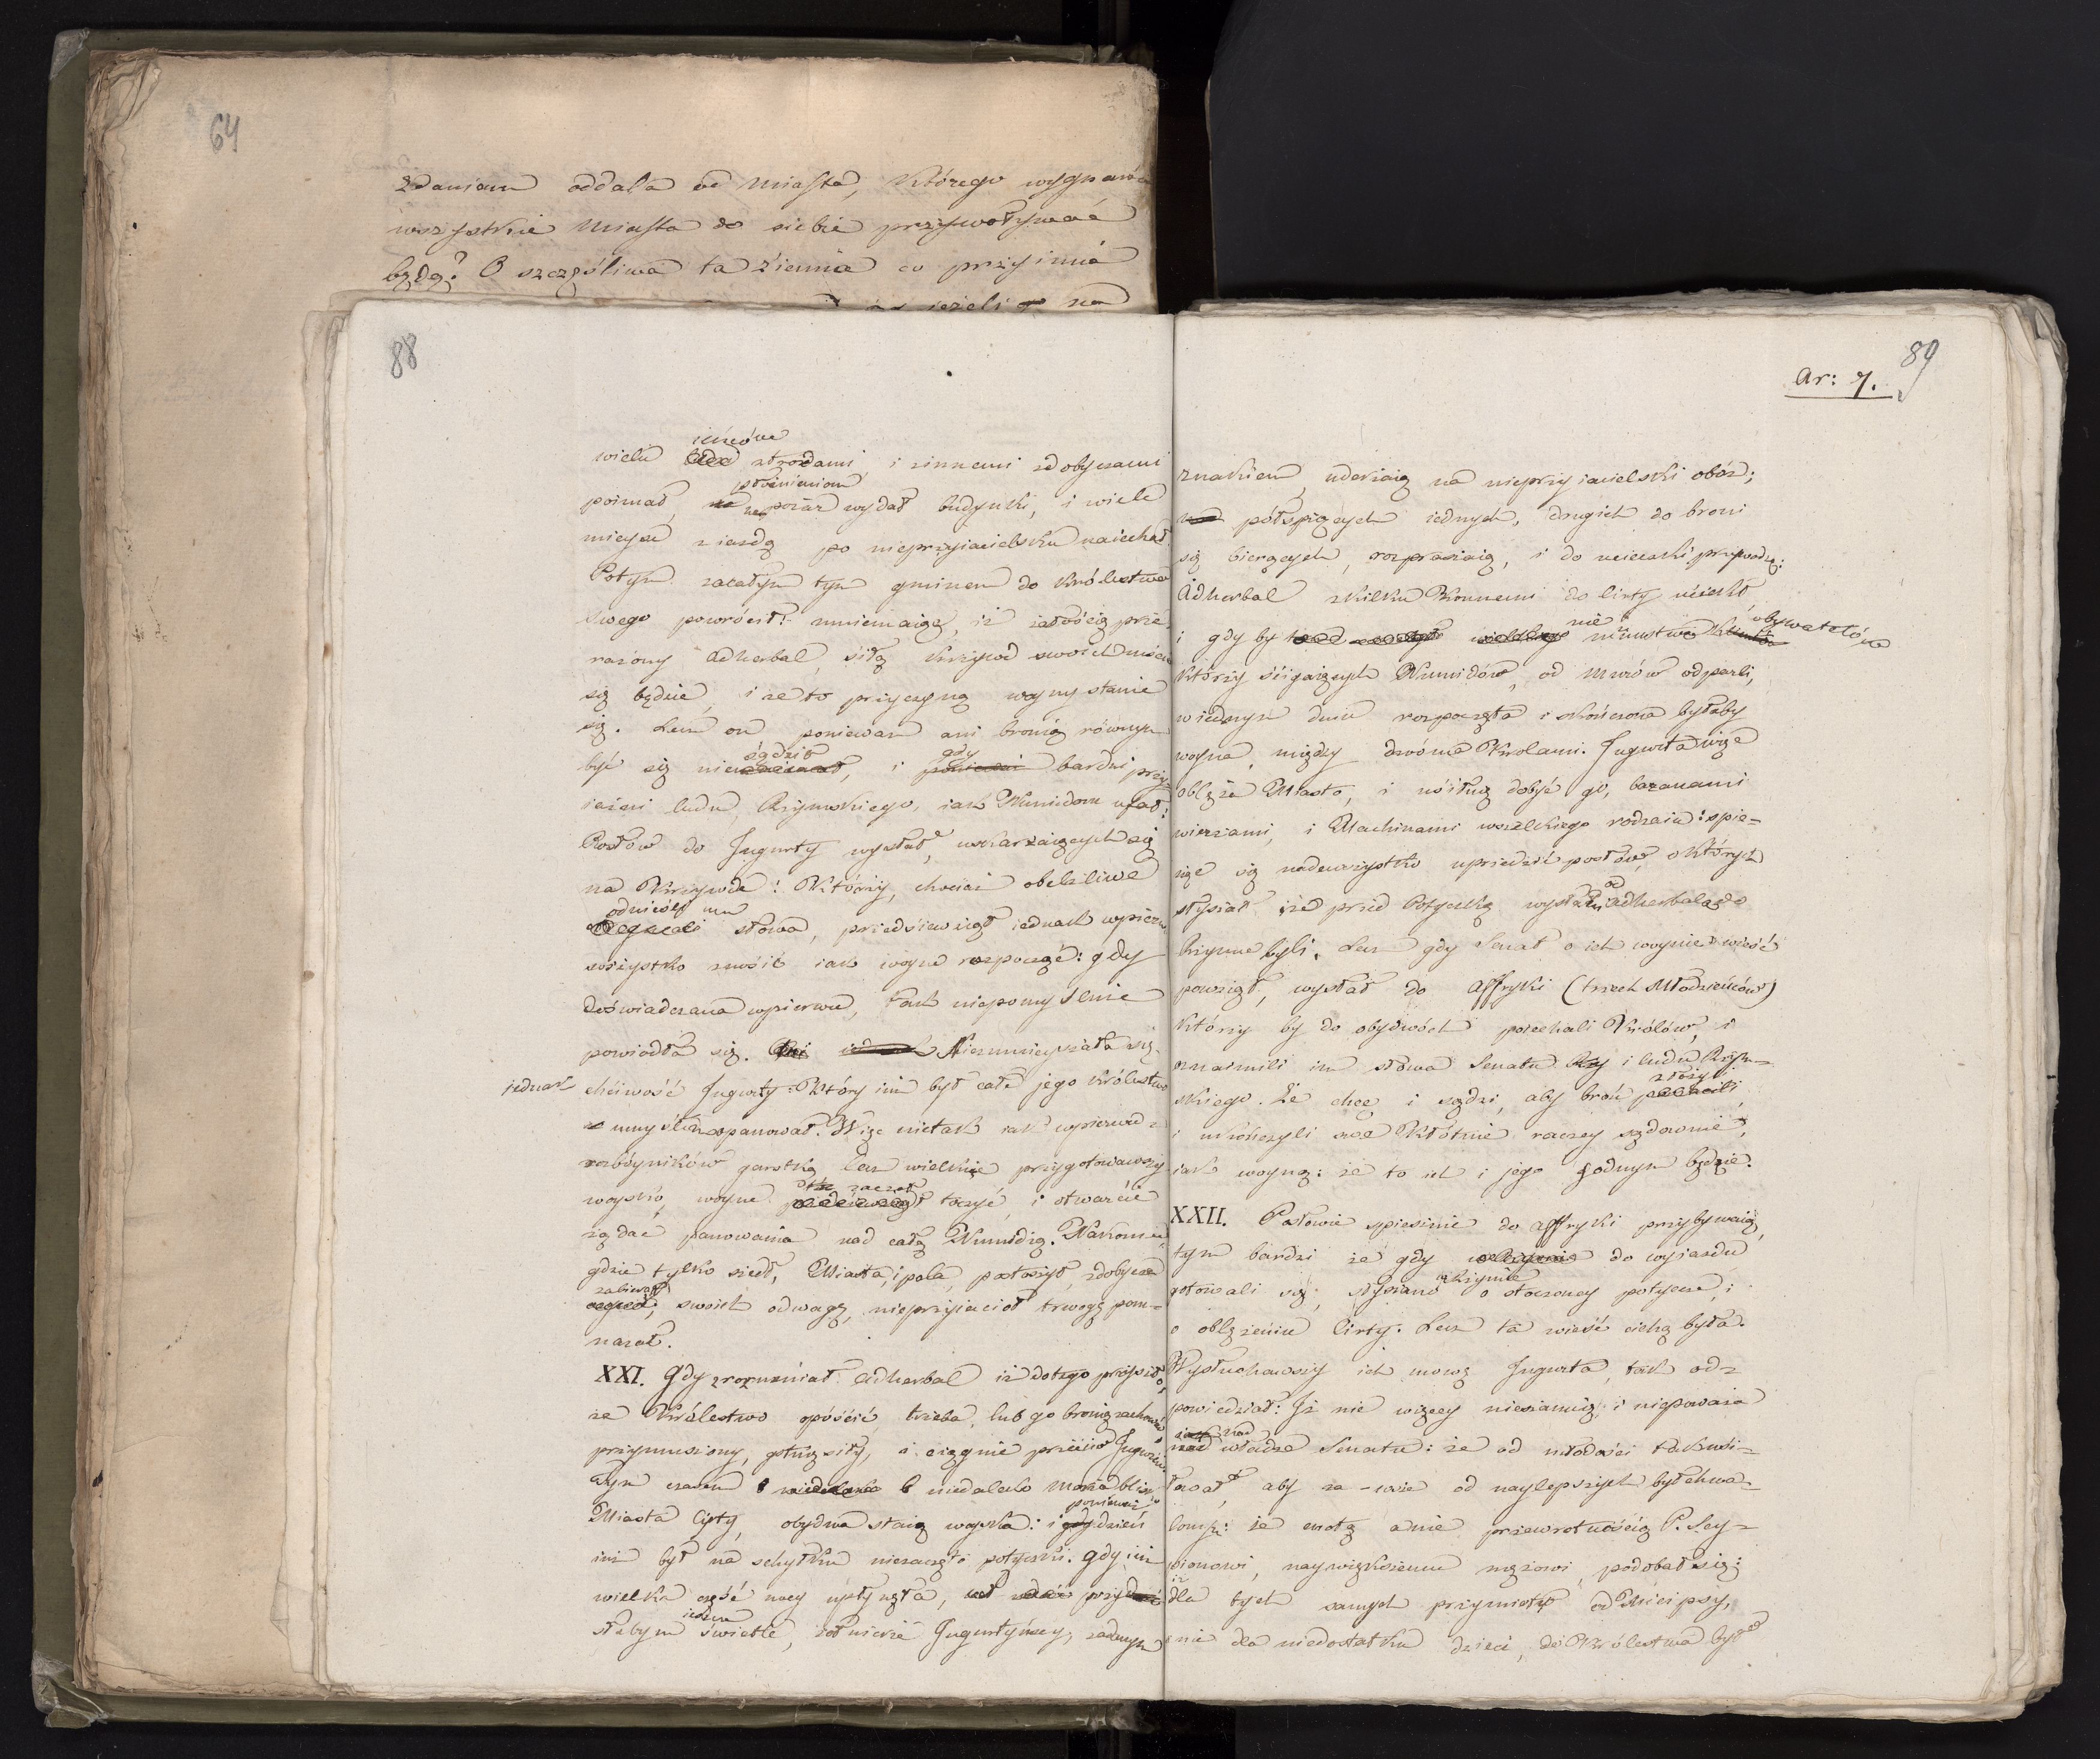 64
zdaniem oddala od miasta, którego wygnańca
wszystkie Miasta do siebie przywoływać
będą? O szczęśliwa ta ziemia co przyimie
ieżeli
88
ieńców
wielu z trzodami, i innemi zdobyczami
płomieniom
poimał, na pożar wydał budynki, i wiele
mieysc z iazdą po nieprzyiacielsku naiechał.
Potym zcałym tym gminem do Królestwa
swego powrócił: mniemaiąc, iż żałością prze-
rażony Adherbal, siłą krzywd swoich mścić
się będzie, i że to przyczyną woyny stanie
się. Lecz on ponieważ ani bronią równym
sądził gdy
być się nie, i bardzi przy-
iaźni ludu Rzymskiego, iak Numidom ufał:
Posłów do Jugurty wysłał, uskarżaiących się
na Krzywdę: Którzy, chociaż obelżliwe
odnieśli mu
słowa, przedsiewziął iednak wpierw
wszystko znosić iak woynę rozpocząć: gdy
doświadczana wpierwu, tak niepomyślnie
powiodła się. Niezmnieyszała się
jednak chciwość Jugurty: Który iuż był całe jego Królestwo
umysłem opanował. Więc nietak iak wpierwu z
rozbóyników garstką lecz wielkie przygotowawszy
zaczął
woysko, woynę toczyć, i otwarcie
żądać panowania nad całą Numidią. Nakoniec
gdzie tylko szedł, Miasta, i pola, pustoszył, zdobycze
zabierał
swoich odwagę, nieprzyiaciół trwogę pom-
nażał.
XXI. Gdy zrozumiał Adherbal iż dotego przyszło,
że Królestwo opuścić trzeba, lub go bronią zachować
przymuszony, gotuie siły, i ciągnie przeciw Jugurcie.
Tym czasem niedaleko morza blisko
ponieważ
Miasta Cyrty, obydwa staią woyska: i dzień
iuż był na schyłku niezaczęto potyczki. Gdy iuż
wielka część nocy upłynęła, przy
ieszcze
słabym świetle, żołnierze Jugurtyńscy, zadanym
89
Ar: 7.
znakiem, uderzaią na nieprzyiacielski obóz;
półspiących iednych, drugich do broni
się bierących, rozpraszaią, i do ucieczki przywodzą:
Adherbal zkilku Konnemi do Cirty uciekł
nie obywatelów
i gdy by mnóstwo
którzy ścigaiących Numidów, od murów odparli,
wiednym dniu rozpoczęta i skończona byłaby
woyna, między dwóma Krolami. Jugurta więc
oblęże Miasto, i usiłuie dobyć go, taranami
wieżami, i Machinami wszelkiego rodzaiu: spie-
szy się nadewszystko uprzedzić posłów, o których
od
słyszał że przed Potyczką wysłani Adherbala do
Rzymu byli. Lecz gdy Senat o ich woynie wieść
powziął, wysłał do Affryki (trzech Młodzieńców)
którzy by do obydwóch poiechali Królów, i
oznaimili im słowa Senatu i ludu Rzym-
złożyli
skiego. Że chcę i sądzi, aby broń
i ukończyli swe Kłótnie raczey sądownie,
iak woyną: że to ich i jego godnym będzie.
XXII. Posłowie spiesznie do Affryki przybywaią,
tym bardzi że gdy do wyiazdu
wRzymie
gotowali się, słyszano o stoczoney potyczce, i
o oblężeniu Cirty. Lecz ta wieść cichą była.
Wysłuchawszy ich mowę Jugurta, tak od-
powiedział: Iż nic więcey nieszanuie i niepoważa
nad
władzę Senatu: że od młodości tak usi-
łował, aby za-wsze od naylepszych był chwa-
lony: że cnotą a nie przewrotnością P. Scy-
pionowi, naywiększemu mężowi, podobał się;
iż
dla tych samych przymiotów od Micipsy,
nie dla niedostatku dzieci, do Królestwa był